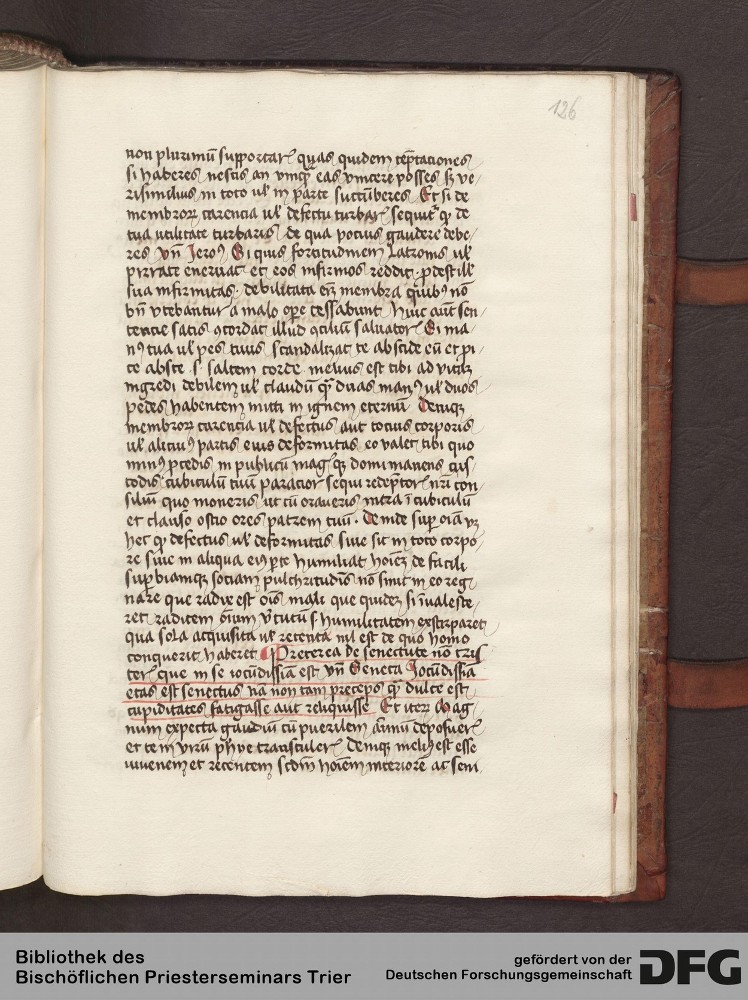 126
non plurimū supportar̄ quas quidem tēptaciones
si haberes nescis an vmqᷓ eas vincere posses sꝫ ve
risimilius in toto ul' in parte succūberes Et si de
membrorꝝ carencia ul' defectu turbar̄ sequit' ꝙ de
tua utilitate turbaris de qua pocius gaudere debe
res vn̄ Jeroꝰ Si quis fortitudinem latronis ul'
pirrate eneruat et eos infirmos reddit ꝓdest ill'
sua infirmitas debilitata em̄ membra quibꝰ nō
bn̄ vtebantur a malo oꝑe cessabunt Huic aut̄ sen
tencie satis ꝯcordat illud ꝯcilium saluator̄ Si ma
nꝰ tua ul' pes tuus scandalizat te abscide eū et pi
ce abs te s̄ saltem corde melius est tibi ad vitā
ingredi debilem ul' claudū qᷓ duas manꝰ ul' duos
pedes habentem mitti in ignem eternū Deniqꝫ
membrorꝝ carencia ul' defectus aut tocius corporis
ul' alicuiꝰ partis eius deformitas eo valet tibi quo
minꝰ ꝓcedis in publicū mag' qꝫ domi manens cus
todis cubiculū tuū paracior sequi redēptor̄ nr̄i con
siliū quo moneris ut cū oraueris intra ī cubiculū
et clauso ostio ores patrem tuū . Deinde suꝑ oīa
hec ꝙ defectus ul' deformitas siue sit in toto corpo
re siue in aliqua eiꝰ ꝑte humiliat hoīeꝫ de facili
suꝑbiamqꝫ sociam pulchritudīs nō sinit in eo reg
nare que radix est oīs mali que quideꝫ si īualesce
ret radicem oīum v̄tutū s̄ humilitatem exstirparet
qua sola acquisita ul' retenta nil est de quo homo
conquerit haberet Preterea de senectute nō tris
ter̄ que in se iocūdissīa est vn̄ Seneca Jocūdissīa
etas est senectus nā non tam preceps qᷓ dulce est
cupiditates fatigasse aut reliquisse Et iteꝝ Mag
num expecta gaudiū cū puerilem animū deposuer̄
et te in virū ph̄ye transtuler̄ Deniqꝫ meliꝰ est esse
iuuenem et recentem scd̄m hoīem interiorē ac seni
Bibliothek des
Bischöflichen Priesterseminars Trier
gefördert von der
Deutschen Forschungsgemeinschaft
DFG